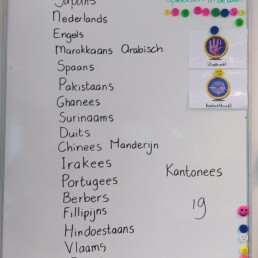 Japans
Nederlands
Engels
Marokkaans Arabisch
Spaans
Pakistaans
Ghanees
Surinaams
Duits
Chinees Manderijn
Irakees
Kantonees
Portugees
Berbers
19
Fillipijns
Hindoestaans
Vlaams